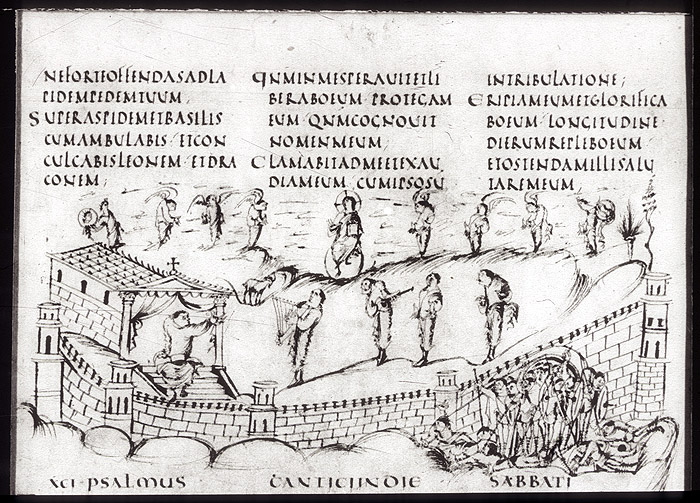 NEFORTEOFFENDASADLA
PIDEMPEDEMTUUM;
SUPERASPIDEMETBASILIS
CUMAMBULABIS·ETCON
CULCABISLEONEM·ETDRA
CONEM;
QNMINMESPERAUITETLI
BERABOEUM·PROTEGAM
EUM·QNMCOGNOUIT
NOMENMEUM;
CLAMABITADMEETEXAU
DIAMEUM·CUMIPSOSU
INTRIBULATIONE;
ERIPIAMEUMETGLORIFICA
BOEUM·LONGITUDINE
DIERUMREPLEBOEUM·
ETOSTENDAMILLISALU
TAREMEUM
XCI·PSALMUS CANTICIINDIE SABBATI